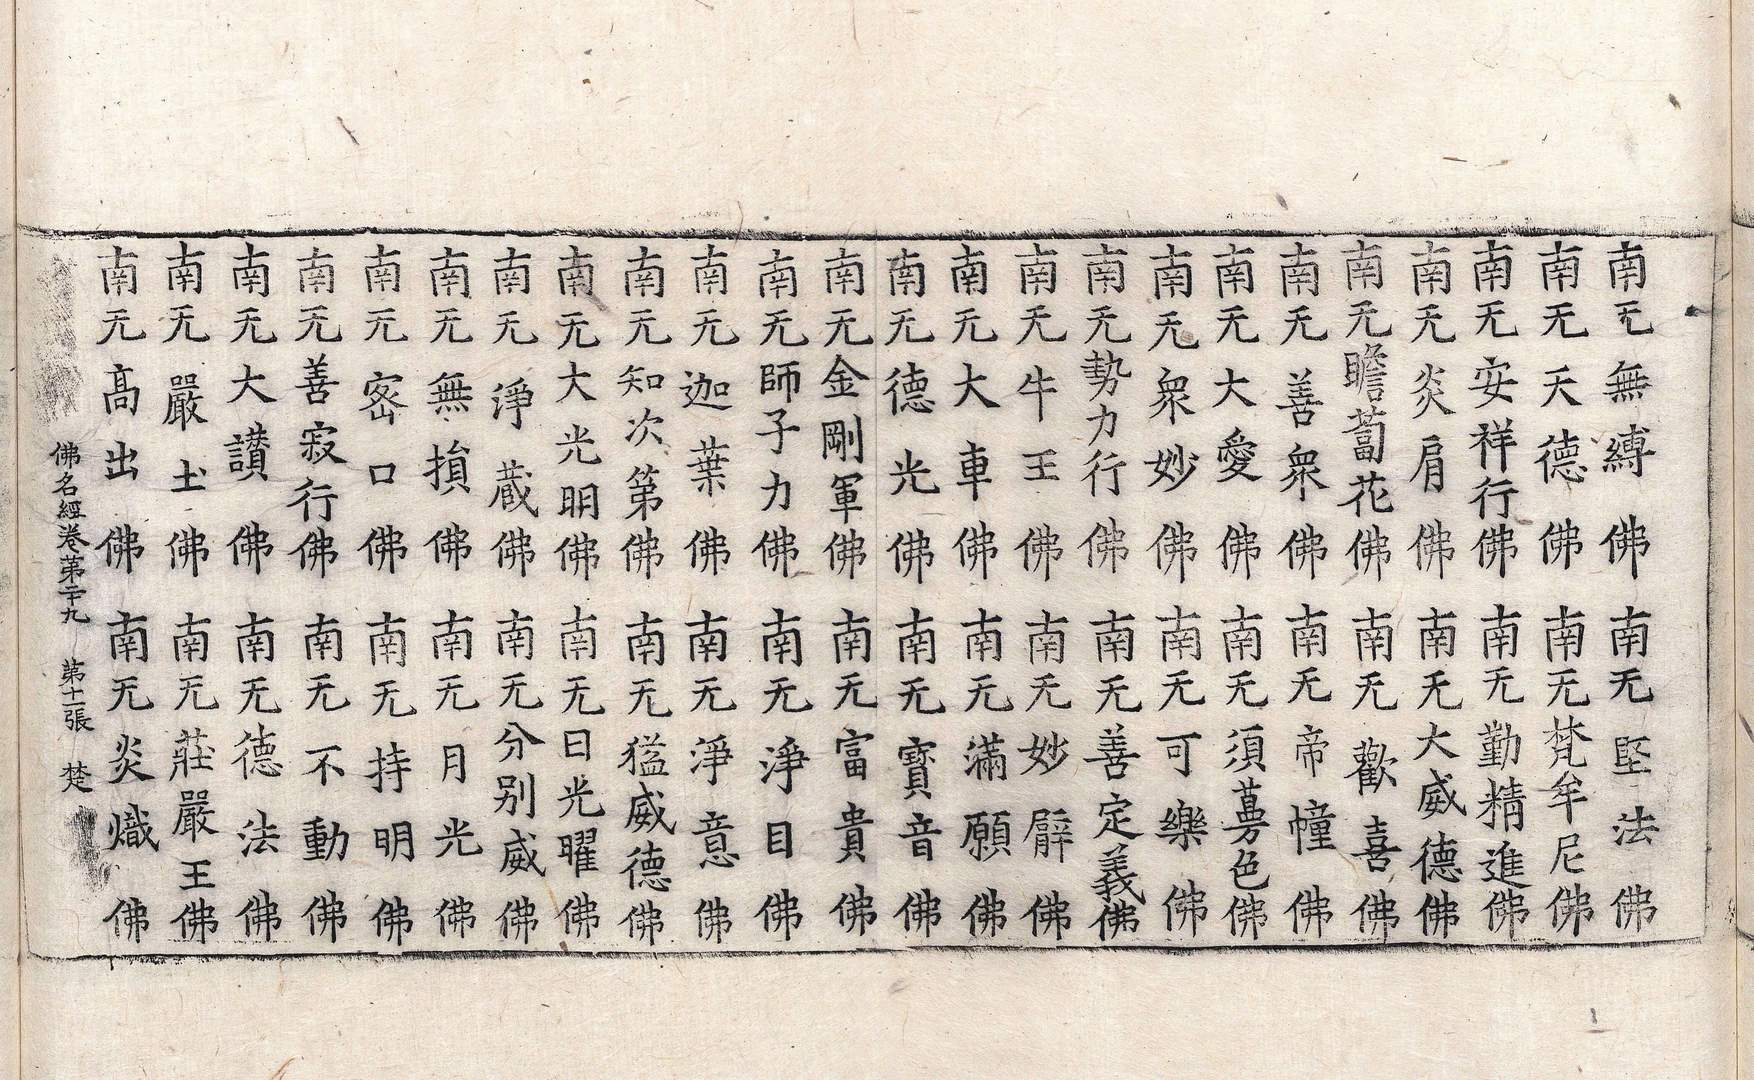 南无無縛佛南无堅法佛
南无天德佛南无梵牟尼佛
南无安祥行佛南无勤精進佛
南无炎肩佛南无大威德佛
南无瞻蔔花佛南无歡喜佛
南无善衆佛南无帝幢佛
南无大愛佛南无須蔓色佛
南无衆妙佛南无可樂佛
南无勢力行佛南无善定義佛
南无牛王佛南无妙臂佛
南无大車佛南无滿願佛
南无德光佛南无寶音佛
南无金剛軍佛南无富貴佛
南无師子力佛南无淨目佛
南无迦葉佛南无淨意佛
南无知次第佛南无猛威德佛
南无大光明佛南无日光曜佛
南无淨蔵佛南无分別威佛
南无無損佛南无月光佛
南无密口佛南无持明佛
南无善寂行佛南无不動佛
南无大讃佛南无德法佛
南无嚴土佛南无莊嚴王佛
南无高出佛南无炎熾佛
佛名經卷第二十九 第十一張 楚